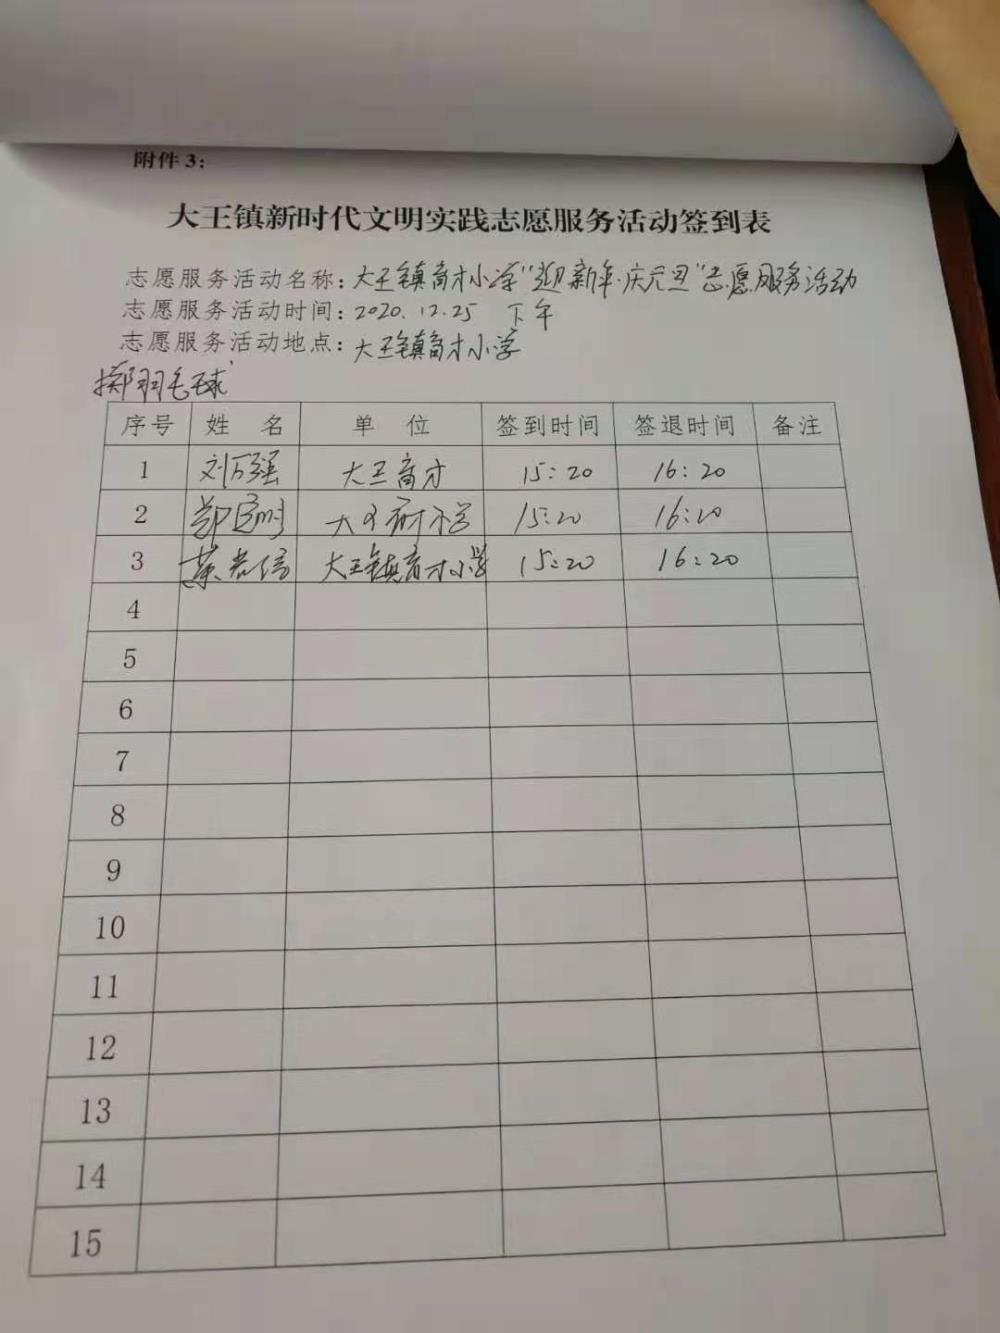 附件3:
大王镇新时代文明实践志愿服务活动签到表
志愿服务活动名称:大王镇育才小学"迎新年·庆元旦"志愿服务活动
志愿服务活动时间:2020.12.25 下午
志愿服务活动地点:大王镇育才小学
掷羽毛球
序号 姓 名 单 位 签到时间 签退时间 备注
1 刘万强 大王育才 15:20 16:20
2 15:20 16:20
3 大王镇育才小学 15:20 16:20
4
5
6
7
8
9
10
11
12
13
14
15